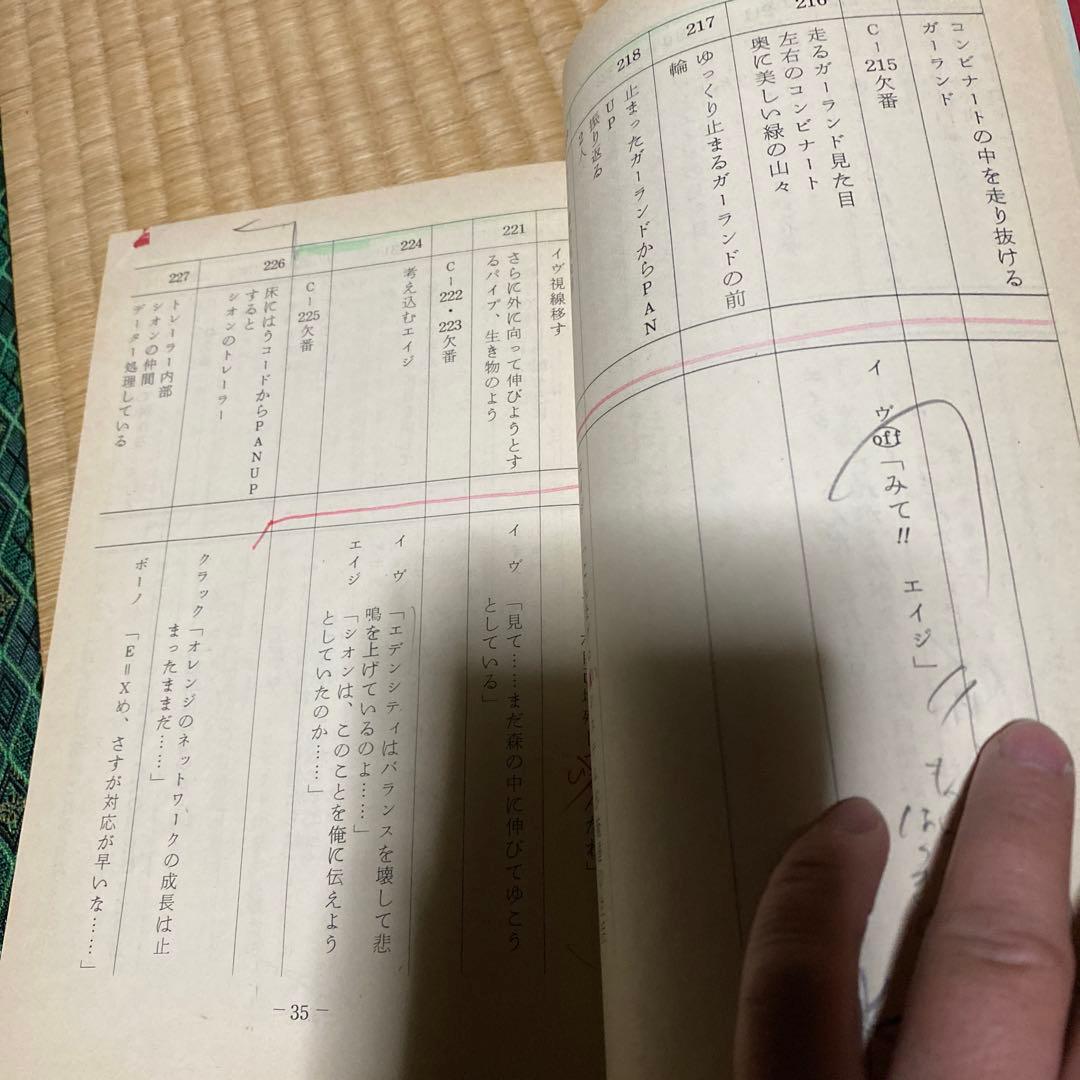 コンビナートの中を走り抜ける
ガーランド
C-215欠番
216
走るガーランド見た目
左右のコンビナート
奥に美しい緑の山々
217
ゆっくり止まるガーランドの前
輪
218
止まったガーランドからPAN
UP
振り返る
2人
イヴoff「みて!! エイジ」
イヴ視線移す
221
さらに外に向って伸びようとす
るパイプ、生き物のよう
イヴ「見て……まだ森の中に伸びてゆこう
としている」
C-222・223欠番
224
考え込むエイジ
イヴ「エデンシティはバランスを壊して悲
鳴を上げているのよ……」
エイジ「シオンは、このことを俺に伝えよう
としていたのか……」
C-225欠番
226
床にはうコードからPANUP
すると
シオンのトレーラー
227
トレーラー内部
シオンの仲間
データー処理している
クラック「オレンジのネットワークの成長は止
まったままだ……」
ボーノ「E=Xめ、さすが対応が早いな……」
-35-